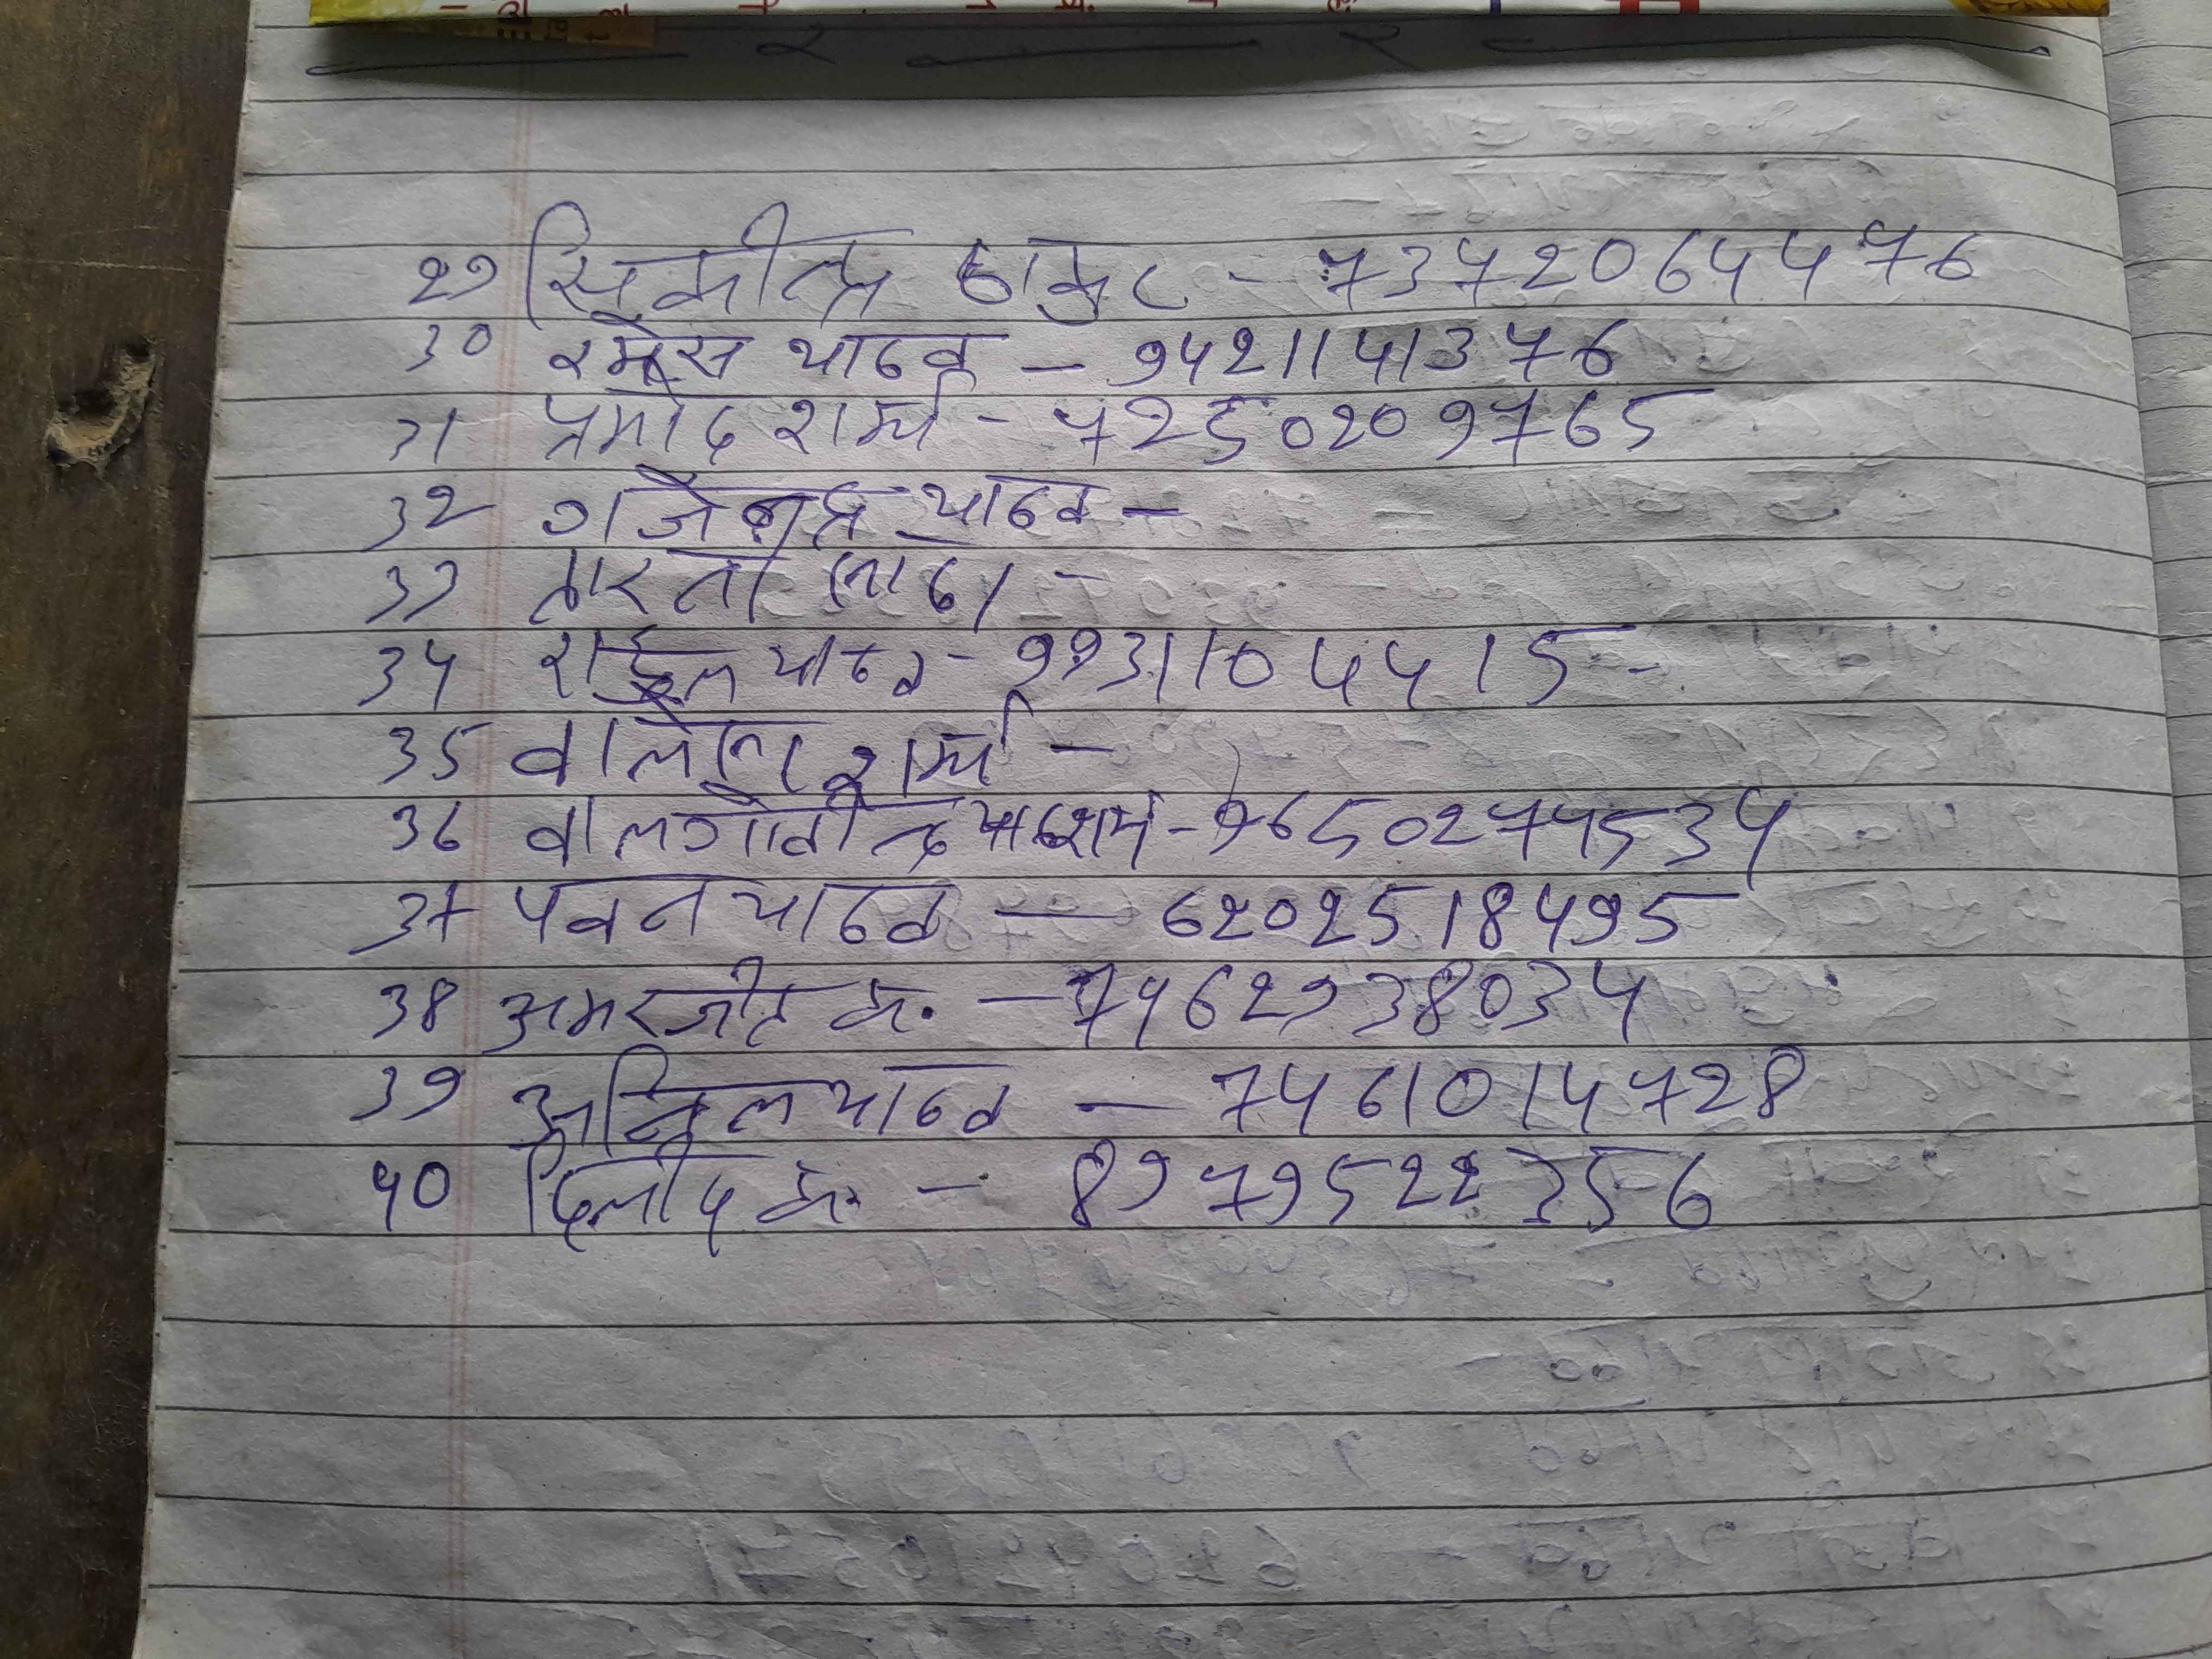 29 सिकीन्द्र ठाकुर - 7372064476
30 रमेस यादव - 9421141376
31 प्रमोद शर्मा - 7250209765
32 गजेन्द्र यादव -
33
34 राहुल यादव - 9931104415 -
35 शर्मा -
36 वालगोवीन्द शर्म - 9650274534
37 पवन यादव - 6202518495
38 अमरजीत कु. - 7462938034
39 अनिल यादव - 7461014728
40 दिलीप कु. - 8979522356